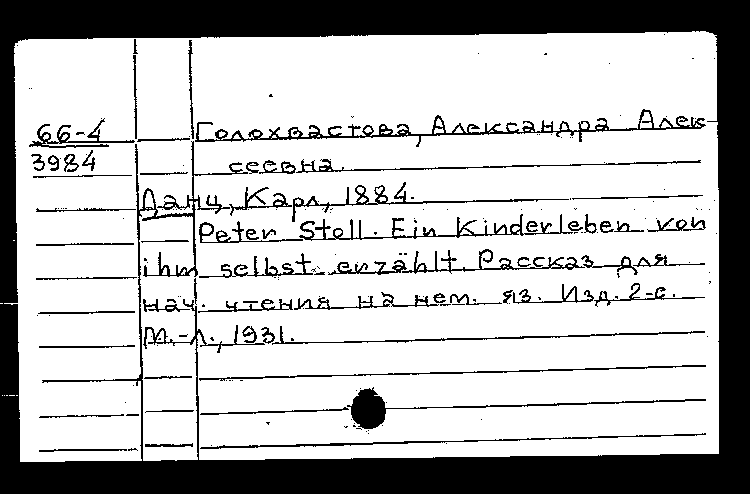 66-4 Голохвастова, Александра Алек-
3984 сеевна.
Данц, Карл, 1884.
Peter Stoll. Ein Kinderleben von
ihm selbst erzählt. Рассказ для
нач. чтения на нем. яз. Изд. 2-е.
М.-Л., 1931.